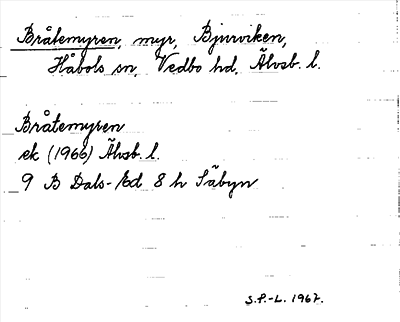 Bråtemyren, myr, Bjurviken,
Håbols sn, Vedbo hd, Älvsb. l.
Bråtemyren
ek (1966) Älvsb. l.
9 B Dals-Ed 8 h Säbyn
S.P.-L. 1967.